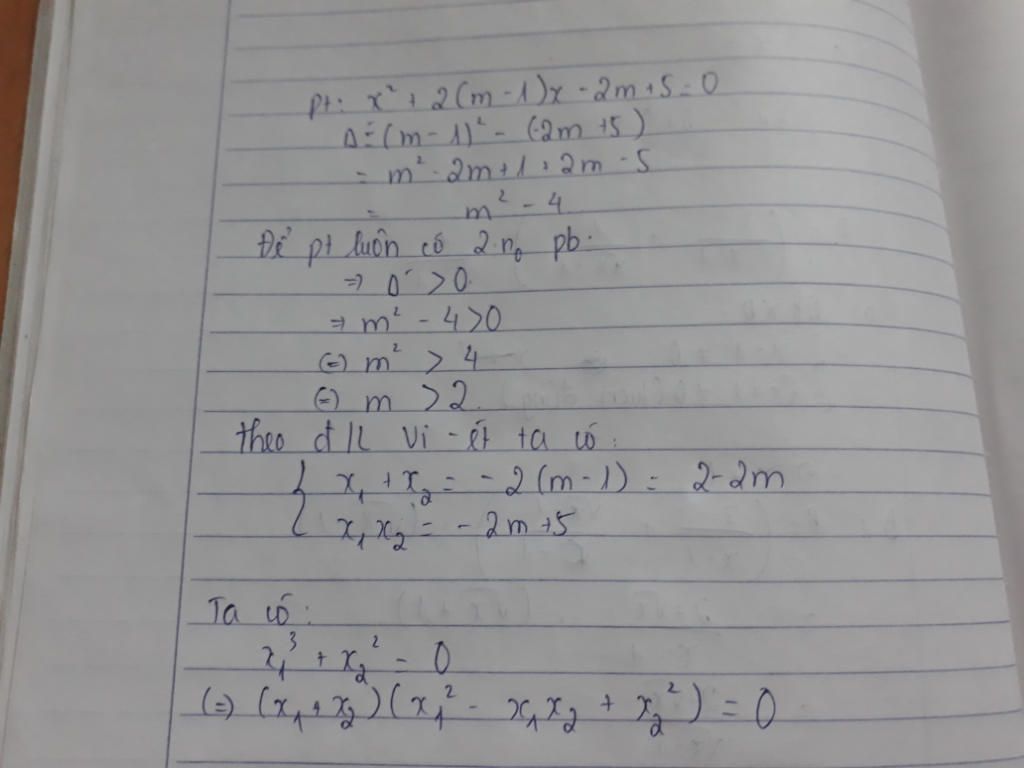 pt: x² + 2(m - 1)x - 2m + 5 = 0
Δ' = (m - 1)² - (-2m + 5)
= m² - 2m + 1 + 2m - 5
= m² - 4
Để pt luôn có 2 n₀ pb.
=> Δ' > 0
=> m² - 4 > 0
(=) m² > 4
(=) m > 2.
theo đ/L Vi-ét ta có:
{ x₁ + x₂ = - 2(m - 1) = 2 - 2m
{ x₁x₂ = - 2m + 5
Ta có:
x₁³ + x₂² = 0
(=) (x₁ + x₂)(x₁² - x₁x₂ + x₂²) = 0